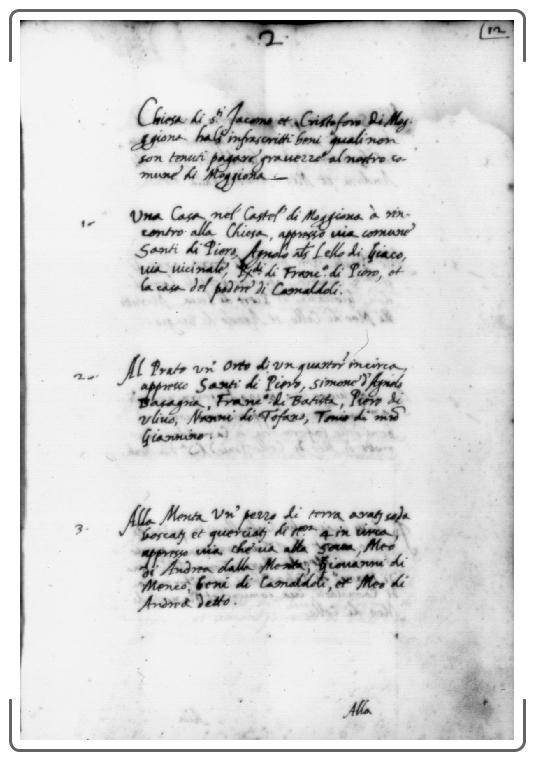 2
12
Chiesa di s.ti Jacomo et Cristoforo di Mog=
giona ha l'infrascritti beni quali non
son tenuti pagare gravezze al nostro co=
mune di Moggiona
1. Una Casa nel Castel.o di Moggiona à rin=
contro alla Chiesa, appresso via comune
Santi di Piero, Agnolo als Lello di Giaco,
via vicinale, di Franc.o di Piero, et
la casa del podere di Camaldoli.
2. Al Prato un' Orto di un quartor.o incirca,
appresso Santi di Piero, Simone d'Agnolo
Basagna, Franc.o di Batista, Piero di
Ulivo, Nanni di Tofano, Tonio di
Giannino.
3. Alla Menta Un' pezzo di terra
boscata et querciata di 4 in circa,
appresso via che va alla Meo
di Andrea dalla Menta, Giovanni di
Menco, beni di Camaldoli, et Meo di
Andrea detto.
Alla